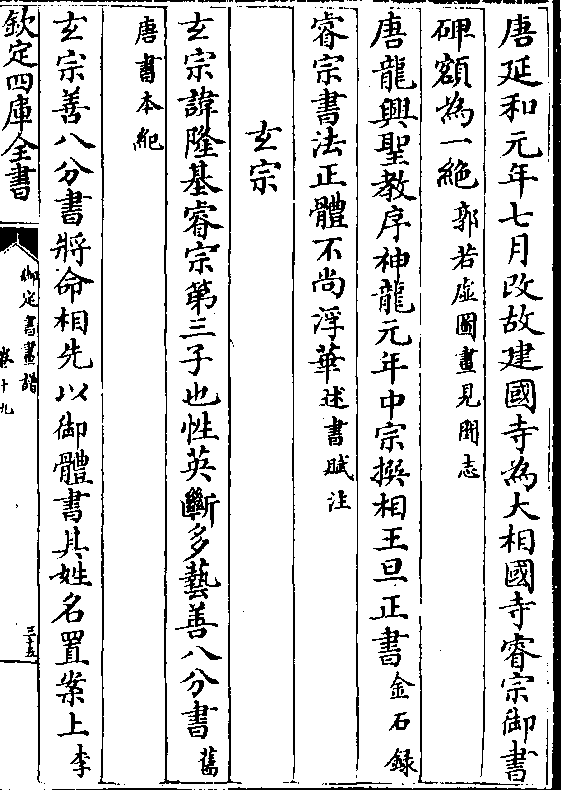 唐延和元年七月改故建國寺為大相國寺睿宗御書
碑額為一絶郭若虛圖畫見聞志
唐龍興聖教序神龍元年中宗撰相王旦正書金石錄
睿宗書法正體不尚浮華述書賦注
玄宗
玄宗諱隆基睿宗第三子也性英斷多藝善八分書舊
唐書本紀
玄宗善八分書將命相先以御體書其姓名置案上李
欽定四庫全書
御定書畫譜
卷十九
三十五